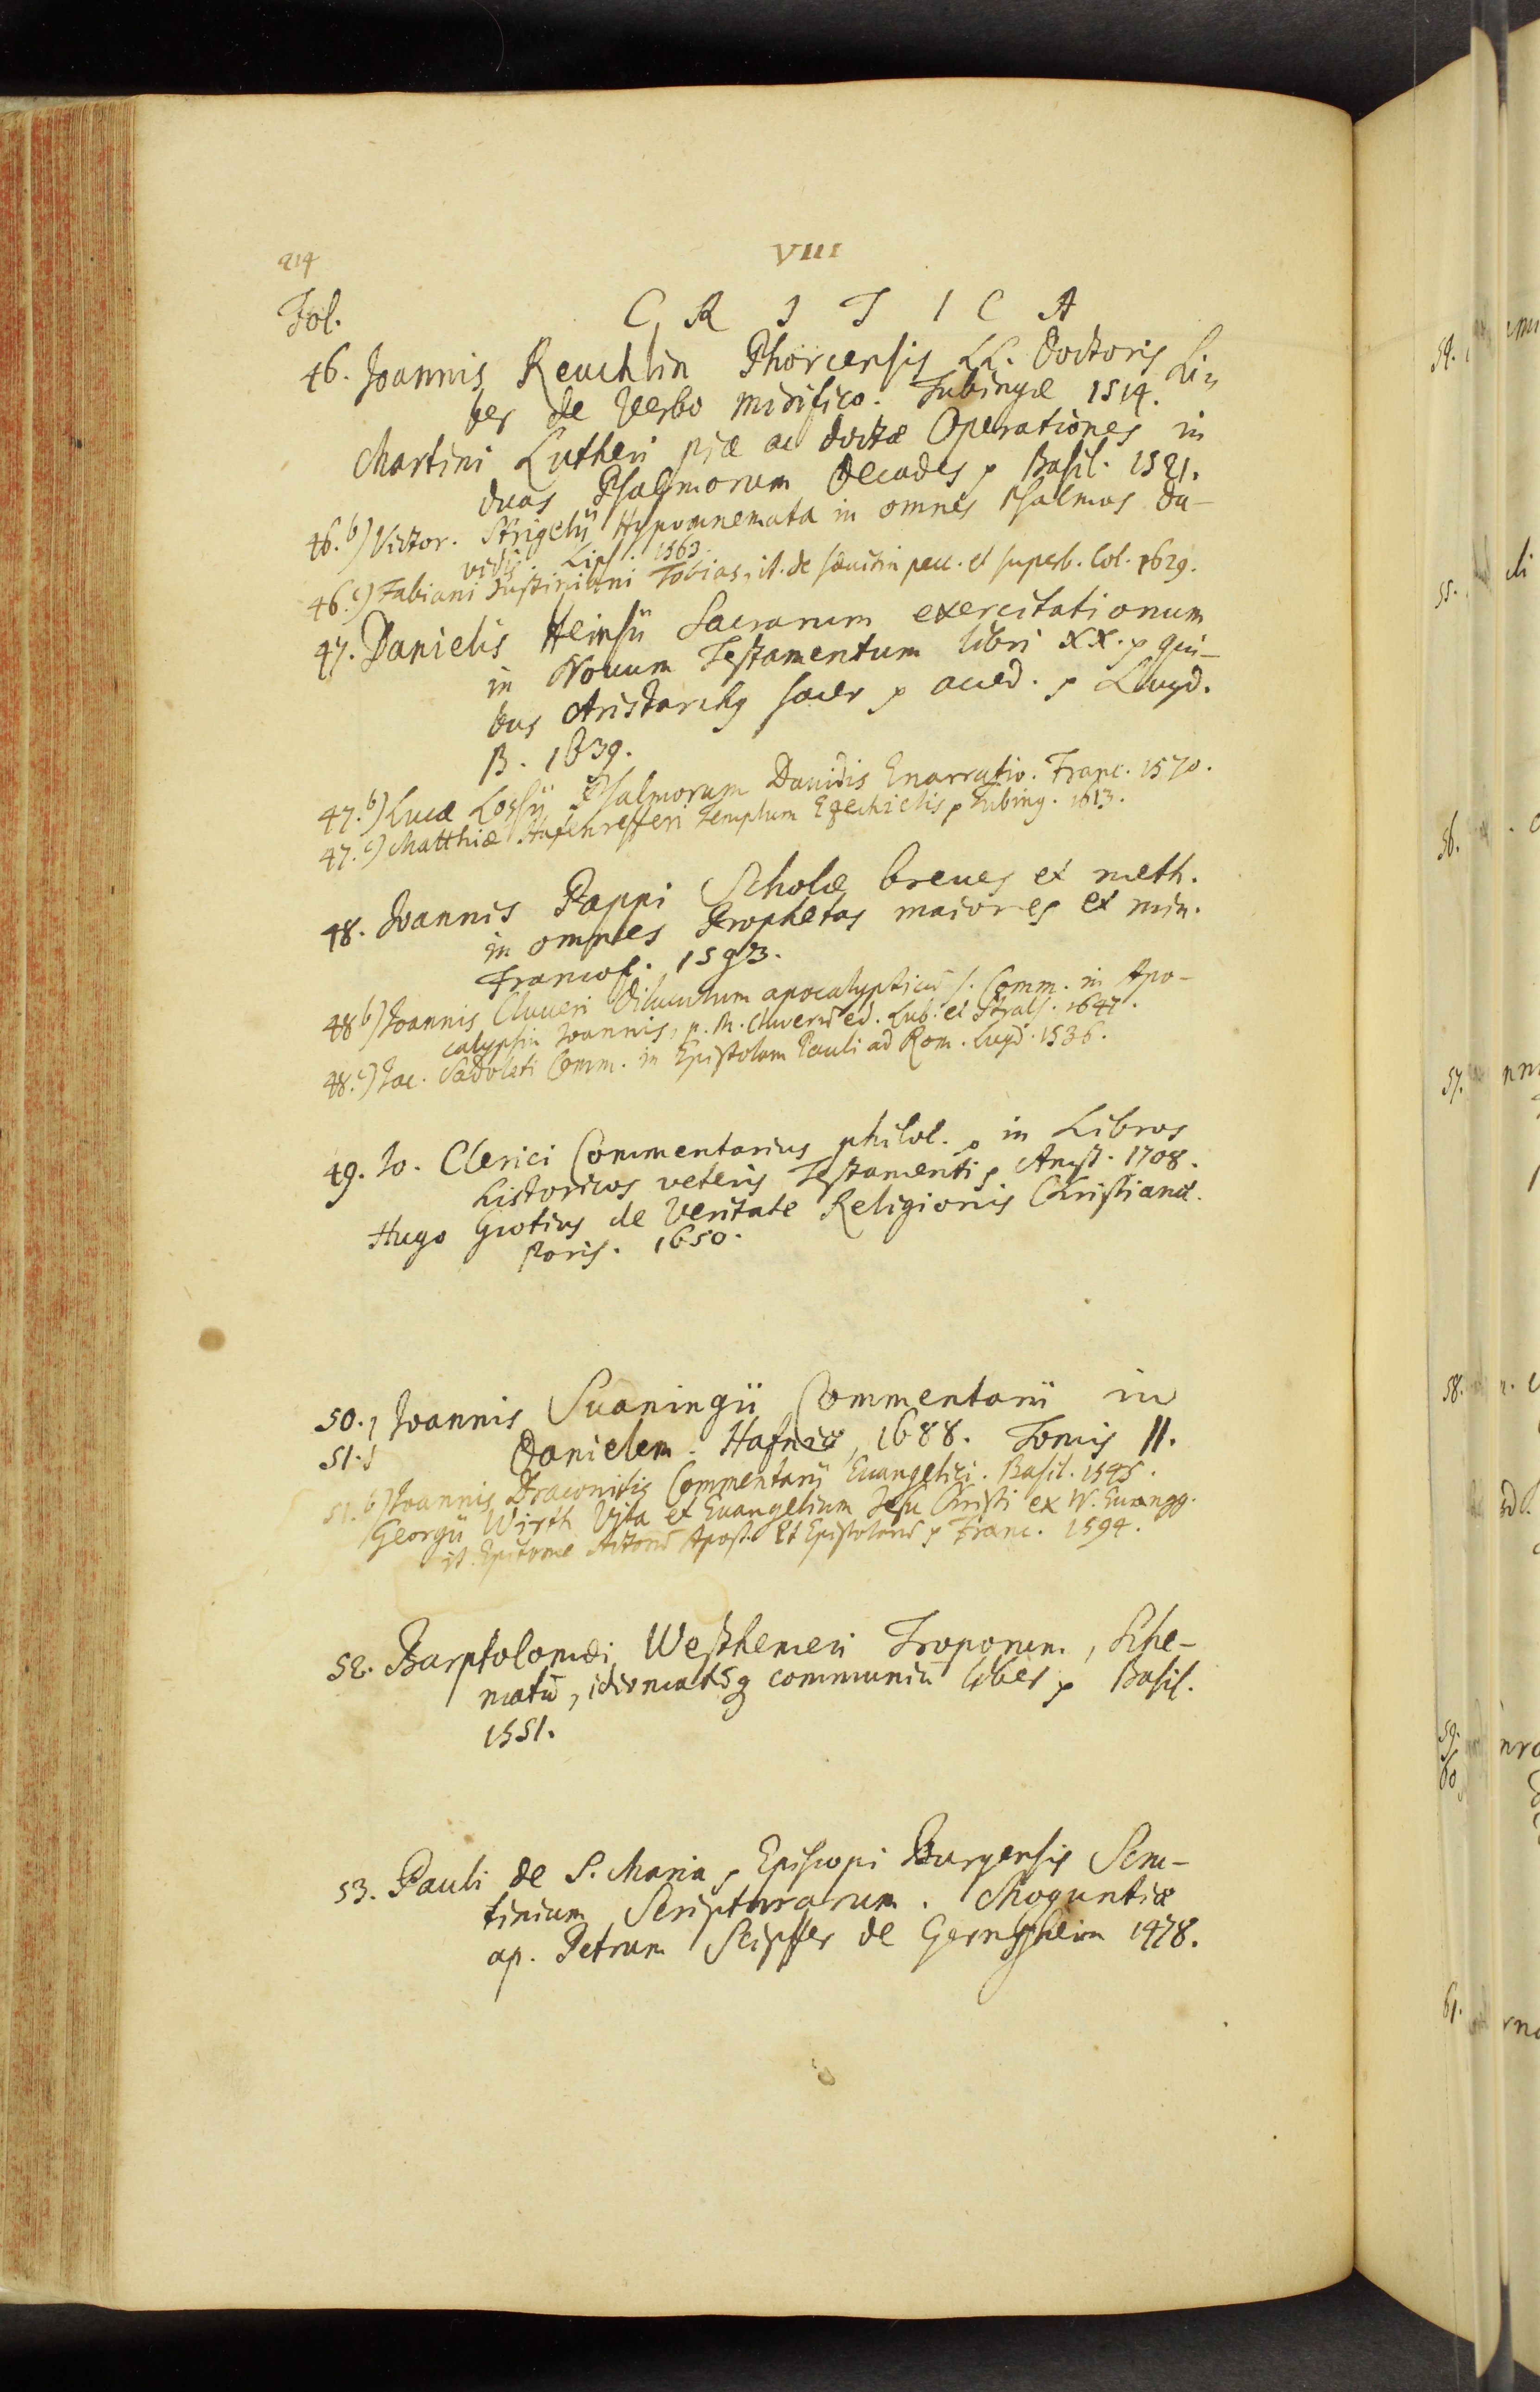 214
VIII
Fol.
C R I T I C A
46. Joannis Reuchlin Phorcensis LL. Doctoris Li-
ber de Verbo mirifico. Tubingæ 1514.
Martini Lutheri piæ ac doctæ Operationes in
duas Psalmorum Decades, Basil. 1521.
46.b) Victor. Strigelii Hypomnemata in omnes Psalmos Da-
vidis. Lips. 1563.
46.c) Fabiani Justiniani Tobias, it. de sævitia pecc. et superb. Col. 1629.
47. Danielis Heinsii Sacrarum exercitationum
in Novum Testamentum libri XX. qui-
bus Aristarchg sacer acced. Lugd.
B. 1639.
47.b) Lucæ Lossii Psalmorum Davidis Enarratio. Franc. 1570.
47.c) Matthiæ Hafenrefferi Templum Ezechielis, Tubing. 1613.
48. Joannis Pappi Scholæ breves et meth.
in omnes Prophetas maiores et min.
Francof. 1593.
48 b) Joannis Cluveri Diluculum apocalypticū s. Comm. in Apo-
calypsin Joannis, p. M. Cluverū ed. Lub. et Strals. 1647.
48.c) Jac. Sadoleti Comm. in Epistolam Pauli ad Rom. Lugd. 1536.
49. Jo. Clerici Commentarius philol. in Libros
historicos veteris Testamenti, Amst. 1708.
Hugo Grotius de Veritate Religionis Christianæ.
Paris. 1650.
50. Joannis Suaningii Commentarii in
51. Danielem. Hafniæ, 1688. Tomis II.
51.b) Joannis Draconitis Commentarii Euangelici. Basil. 1545.
Georgii Wirth Vita et Euangelium Jesu Christi ex IV. Euangg.
it. Epitome Actorū Apost. Et Epistolarū Franc. 1594.
52. Barptolomæi Westhemeri Troporum, Sche-
matū, idiomatūq communiū liber, Basil.
1551.
53. Pauli de S. Maria, Episcopi Burgensis Scru-
tinium Scripturarum. Moguntiæ
ap. Petrum Scipffer de Gernssheim 1478.
54.
55.
56.
57.
58.
59.
60
61.